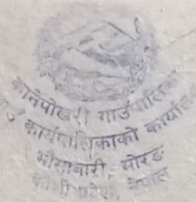 कानेपोखरी गाउँपालिका
गाउँ कार्यपालिकाको कार्यालय
भौसाबारी, मोरङ
प्रदेश, नेपाल